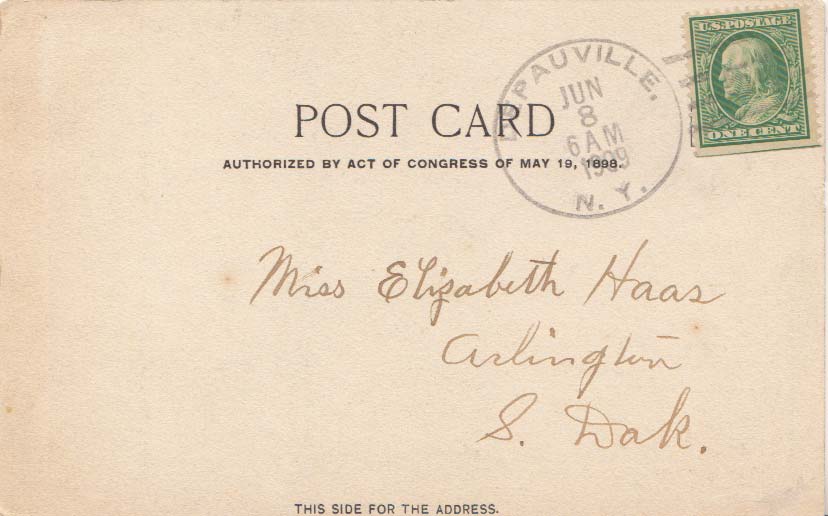 U.S. POSTAGE
ONE CENT
DEPAUVILLE.
JUN
8
6 AM
1909
N. Y.
POST CARD
AUTHORIZED BY ACT OF CONGRESS OF MAY 19, 1898.
Miss Elizabeth Haas
Arlington
S. Dak.
THIS SIDE FOR THE ADDRESS.